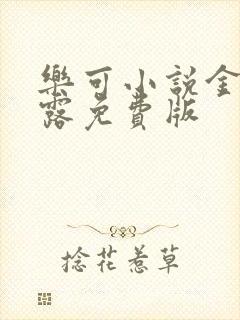 樂可小說金
露免費版
捻花惹草